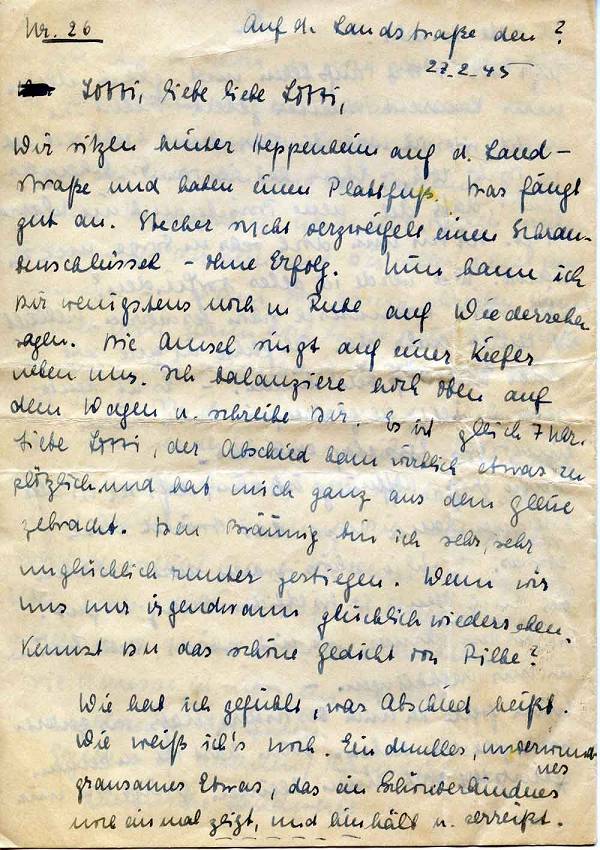 Nr. 26
Auf d. Landstraße den ?
27.2.45
Lotti, liebe liebe Lotti,
Wir sitzen hinter Heppenheim auf d. Land-
straße und haben einen Plattfuß. Das fängt
gut an. Stecher sucht verzweifelt einen Schrau-
benschlüssel - ohne Erfolg. Nun kann ich
Dir wenigstens noch in Ruhe auf Wiedersehen
sagen. Die Amsel singt auf einer Kiefer
neben uns. Ich balanziere hoch oben auf
dem Wagen u. schreibe Dir. Es ist gleich 7 Uhr.
Liebe Lotti, der Abschied kam wirklich etwas zu
plötzlich und hat mich ganz aus dem Gleise
gebracht. Den bin ich sehr, sehr
unglücklich runter gestiegen. Wenn wir
uns nur irgendwann glücklich wiedersehen.
Kennst Du das schöne Gedicht von Rilke?
Wie hab ich gefühlt, was Abschied heißt.
Wie weiß ich's noch. Ein dunkles, unverwund-
nes
grausames Etwas, das ein Schönverbundnes
noch einmal zeigt, und hinhält u. zerreißt.